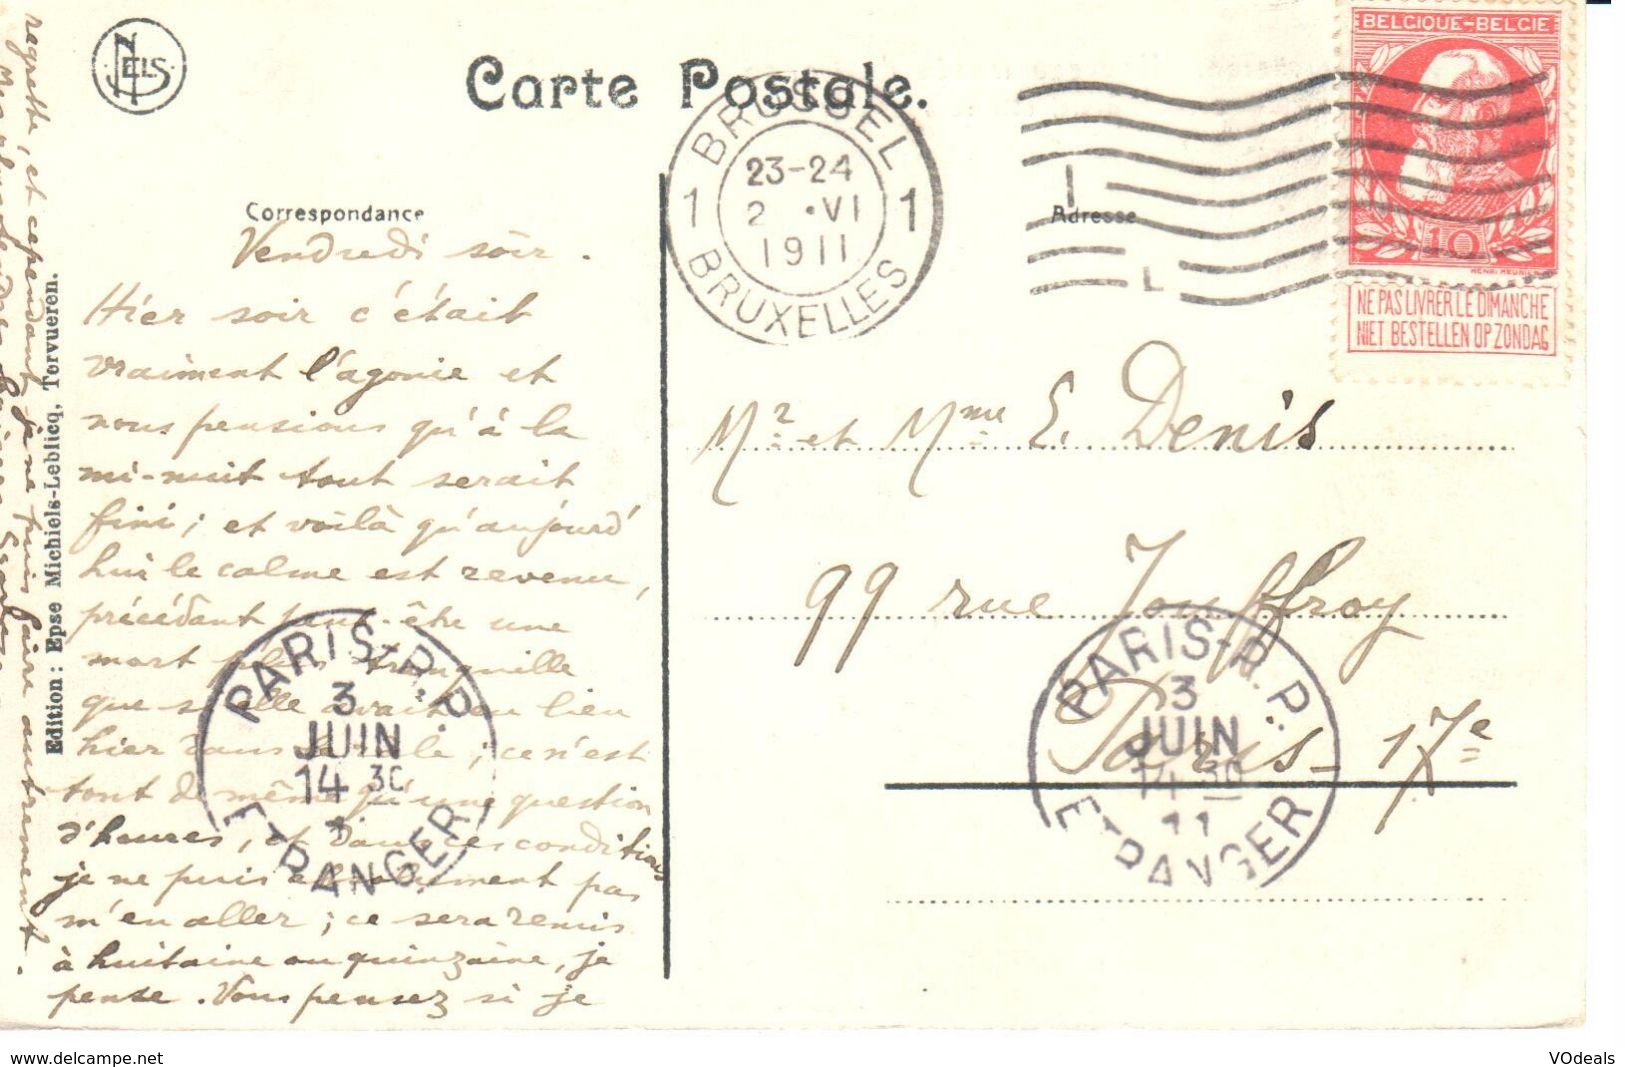 NELS
Carte Postale.
BELGIQUE-BELGIE
10
HENRI MEUNIER
NE PAS LIVRER LE DIMANCHE
NIET BESTELLEN OP ZONDAG
1 BRUSSEL 1
23-24
2 ·VI
1911
BRUXELLES
Correspondance
Adresse
Vendredi soir.
Hier soir c'était
vraiment l'agonie et
nous pensions qu'à la
mi-nuit tout serait
fini; et voilà qu'aujourd'
hui le calme est revenu,
précédant peut-être une
mort plus tranquille
que si elle avait eu lieu
hier dans ; ce n'est
tout de même qu'une question
d'heures, et dans ces conditions
je ne puis absolument pas
m'en aller; ce sera remis
à huitaine ou quinzaine, je
pense. Vous pensez si je
regrette, et cependant je ne puis faire autrement.
Edition : Epse Michiels-Leblicq, Tervueren.
Mr et Mme E. Denis
99 rue Jouffroy
Paris - 17e
PARIS-R.P.
3
JUIN
14 30
ETRANGER
PARIS-R.P.
3
JUIN
14 30
11
ETRANGER
www.delcampe.net
VOdeals